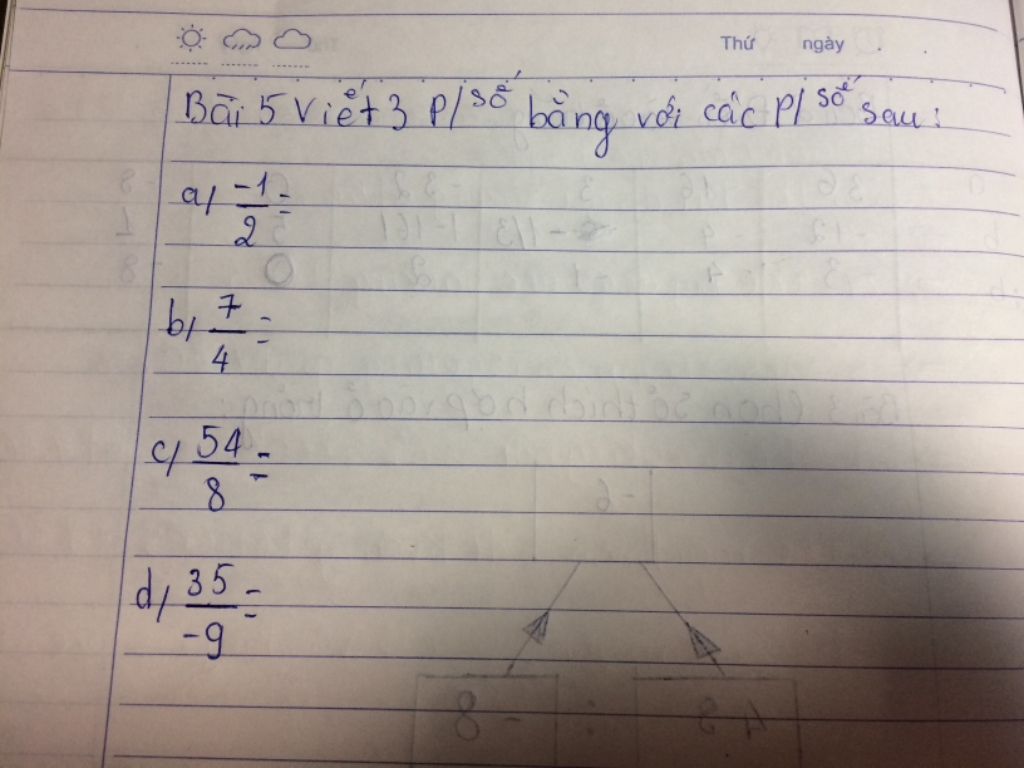 Thứ ngày
Bài 5 Viết 3 P/số bằng với các P/số sau:
a, -1/2 =
b, 7/4 =
c, 54/8 =
d, 35/-9 =